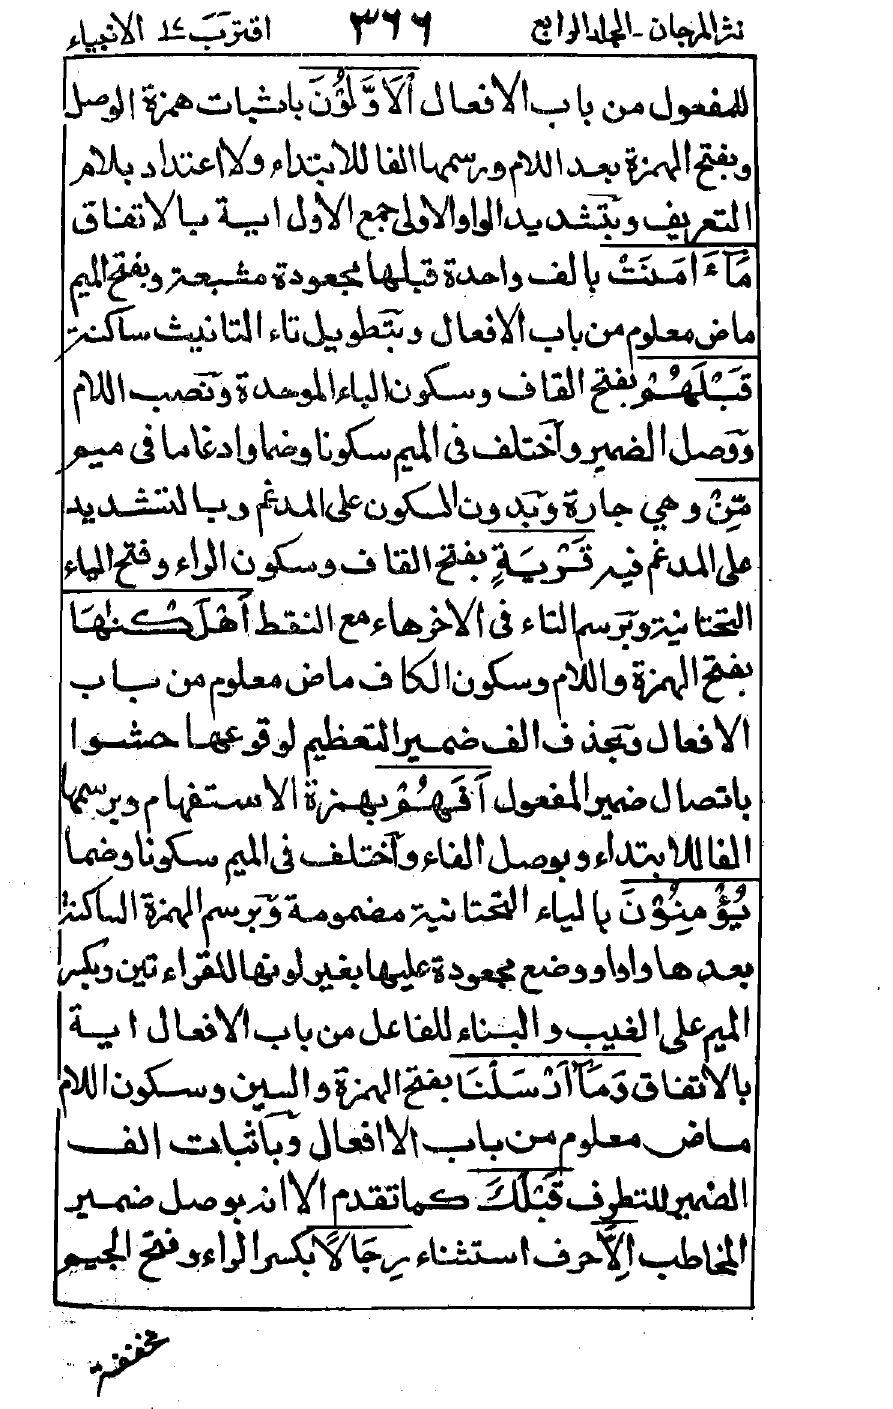 نثر المرجان ـ المجلد الرابع ٣٦٦ اقتربَ ١٧ الانبياء
للمفعول من باب الافعال اْلاَوَّلُوْنَ باثبات همزة الوصل
وبفتح الهمزة بعد اللام ورسمها الفا للابتداء ولااعتداد بلام
التعريف وبتشديد الواو الاولى جمع الاول اية بالاتفاق
مَآءَامَنَتْ بالف واحدة قبلها مجعودة مشبعة وبفتح الميم
ماض معلوم من باب الافعال وبتطويل تاء التانيث ساكنة
قَبْلَهُمْ بفتح القاف وسكون الباء الموحدة ونصب اللام
ووصل الضمير واختلف فى الميم سكونا وضما وادغاما فى ميم
مِّنْ وهي جارة وبدون السكون على المدغم وبالتشديد
على المدغم فيه قَرْيَةٍ بفتح القاف وسكون الراء وفتح الياء
التحتانية وبرسم التاء فى الاخرهاء مع النقط اَهْلَكْنٰهَا
بفتح الهمزة واللام وسكون الكاف ماض معلوم من باب
الافعال وبحذف الف ضمير التعظيم لوقوعها حشوا
باتصال ضمير المفعول اَفَهُمْ بهمزة الاستفهام وبرسمها
الفا للابتداء وبوصل الفاء واختلف فى الميم سكونا وضما
يُؤْمِنُوْنَ بالياء التحتانية مضمومة وبرسم الهمزة الساكنة
بعدها واوا ووضع مجعودة عليها بغير لونها للقراءتين وبكسر
الميم على الغيب والبناء للفاعل من باب الافعال اية
بالاتفاق وَمَآاَرْسَلْنَا بفتح الهمزة والسين وسكون اللام
ماض معلوم من باب الاافعال وباثبات الف
الضمير للتطرف قَبْلَكَ كما تقدم الاانه بوصل ضمير
المخاطب اِلَّا حرف استثناء رِجَالًا بكسر الراء وفتح الجيم
مخففة